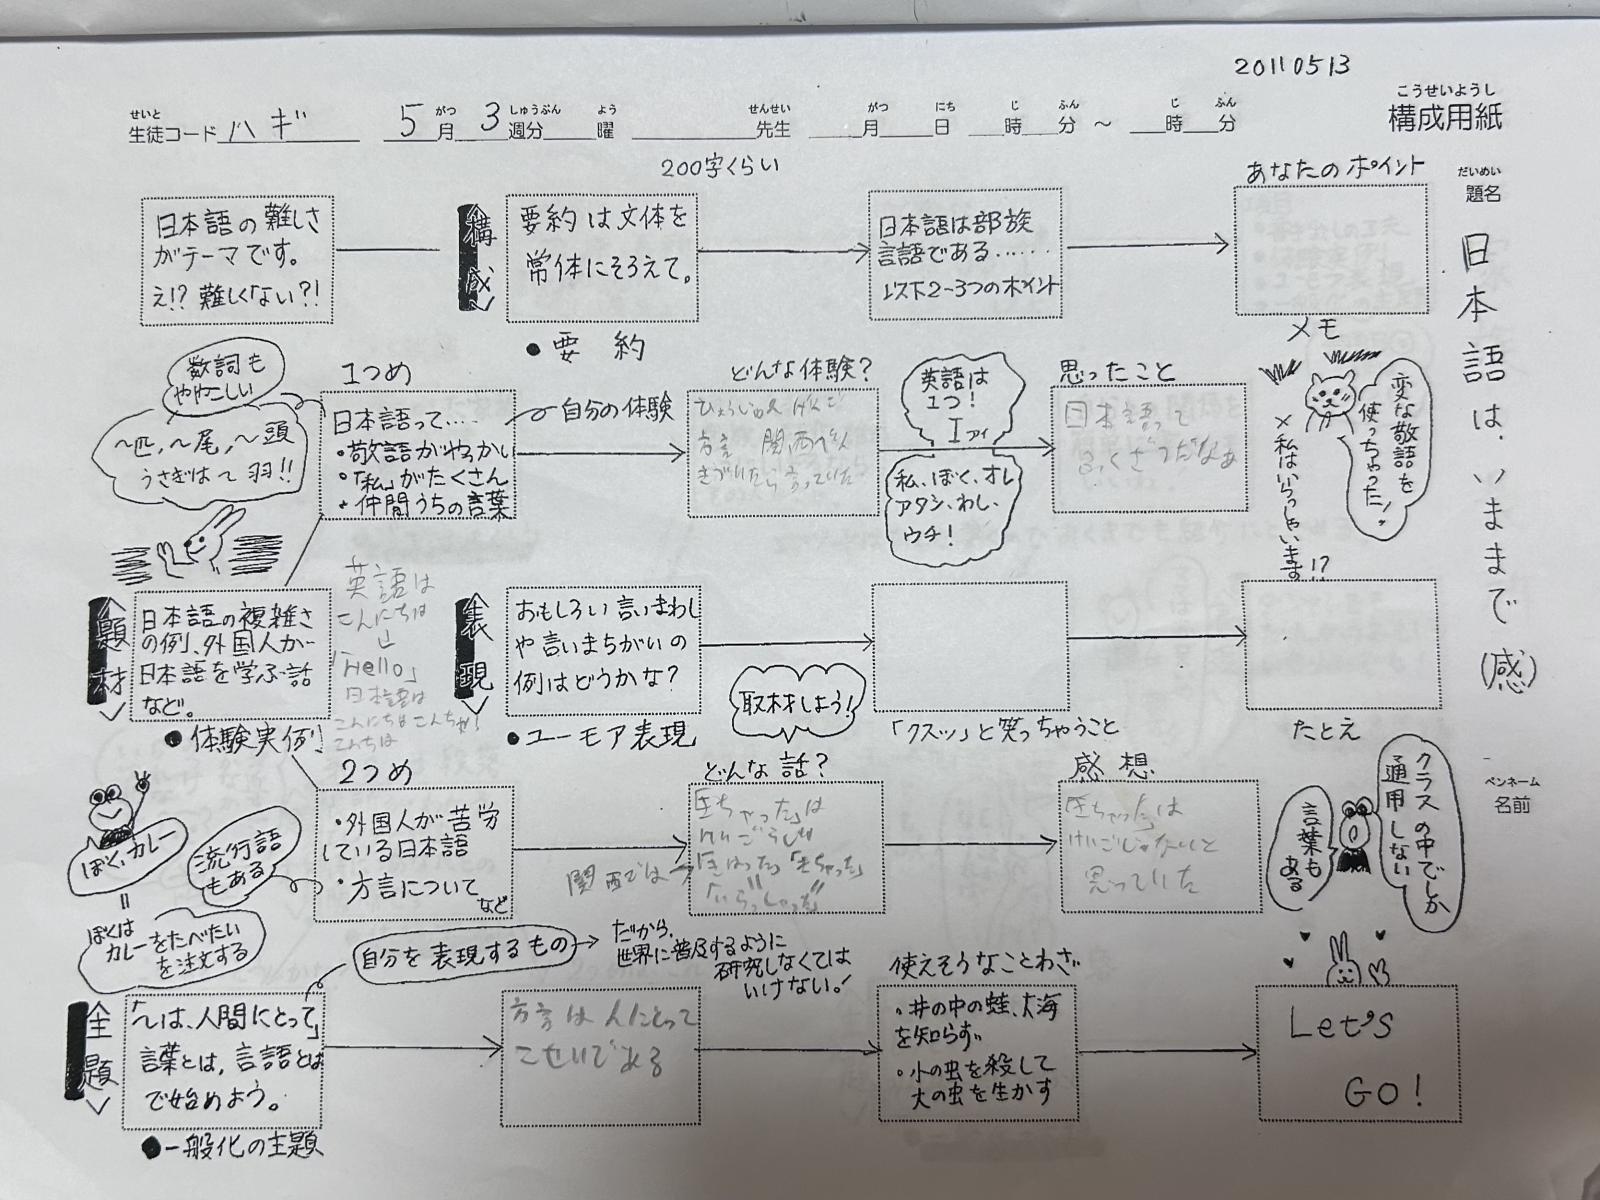 20110513
こうせいようし
構成用紙
せいと がつ しゅうぶん よう せんせい がつ にち じ ふん じ ふん
生徒コード ハギ 5月 3週分 曜 先生 月 日 時 分 ～ 時 分
200字くらい
だいめい
題名
日本語は、いままで(感)
ペンネーム
名前
日本語の難しさ
がテーマです。
え!? 難しくない?!
構成
要約は文体を
常体にそろえて。
●要約
日本語は部族
言語である……
以下2~3つのポイント
あなたのポイント
メモ
数詞も
ややこしい
～匹、～尾、～頭
うさぎは～羽!!
1つめ
日本語って‥‥
・敬語がやっかい
・「私」がたくさん
・仲間うちの言葉
自分の体験
どんな体験?
方言 関西べん
英語は
1つ!
I アイ
私、ぼく、オレ
アタシ、わし、
ウチ!
思ったこと
日本語って
ふくざつだなあ
変な敬語を
使っちゃった!
×私はいらっしゃいます!?
題材
日本語の複雑さ
の例、外国人が
日本語を学ぶ話
など。
●体験実例
英語は
こんにちは
「Hello」
日本語は
こんにちは こんちゃ!
こんちは
表現
おもしろい言いまわし
や言いまちがいの
例はどうかな?
●ユーモア表現
取材しよう!
「クスッ」と笑っちゃうこと
たとえ
ぼく、カレー
=
ぼくは
カレーをたべたい
を注文する
流行語
もある
2つめ
・外国人が苦労
している日本語
・方言について
など
どんな話?
関西では→
感想
けいごじゃないと
思っていた
クラスの中でしか
通用しない
言葉も
ある
全題
「～は、人間にとって」
言葉とは、言語とは
で始めよう。
●一般化の主題
自分を表現するもの
だから、
世界に普及するように
研究しなくては
いけない!
方言は人にとって
こせいである
使えそうなことわざ
・井の中の蛙、大海
を知らず
・小の虫を殺して
大の虫を生かす
Let's
GO!